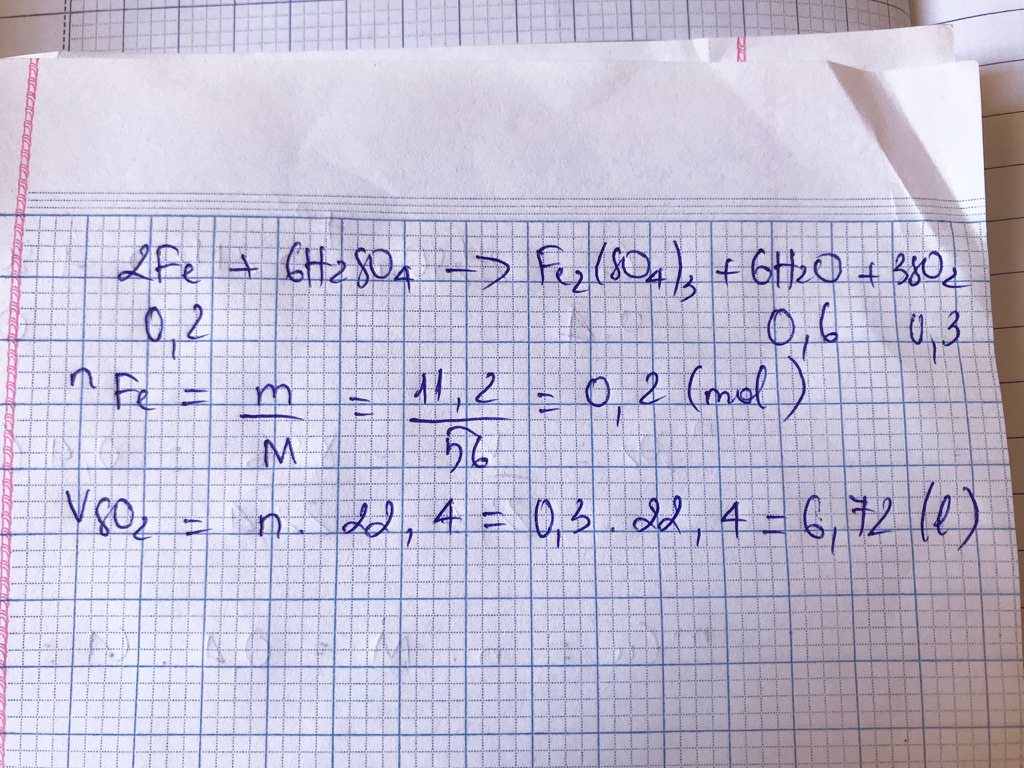 2Fe + 6H2SO4 -> Fe2(SO4)3 + 6H2O + 3SO2
0,2 0,6 0,3
nFe = m/M = 11,2/56 = 0,2 (mol)
VSO2 = n. 22,4 = 0,3. 22,4 = 6,72 (l)